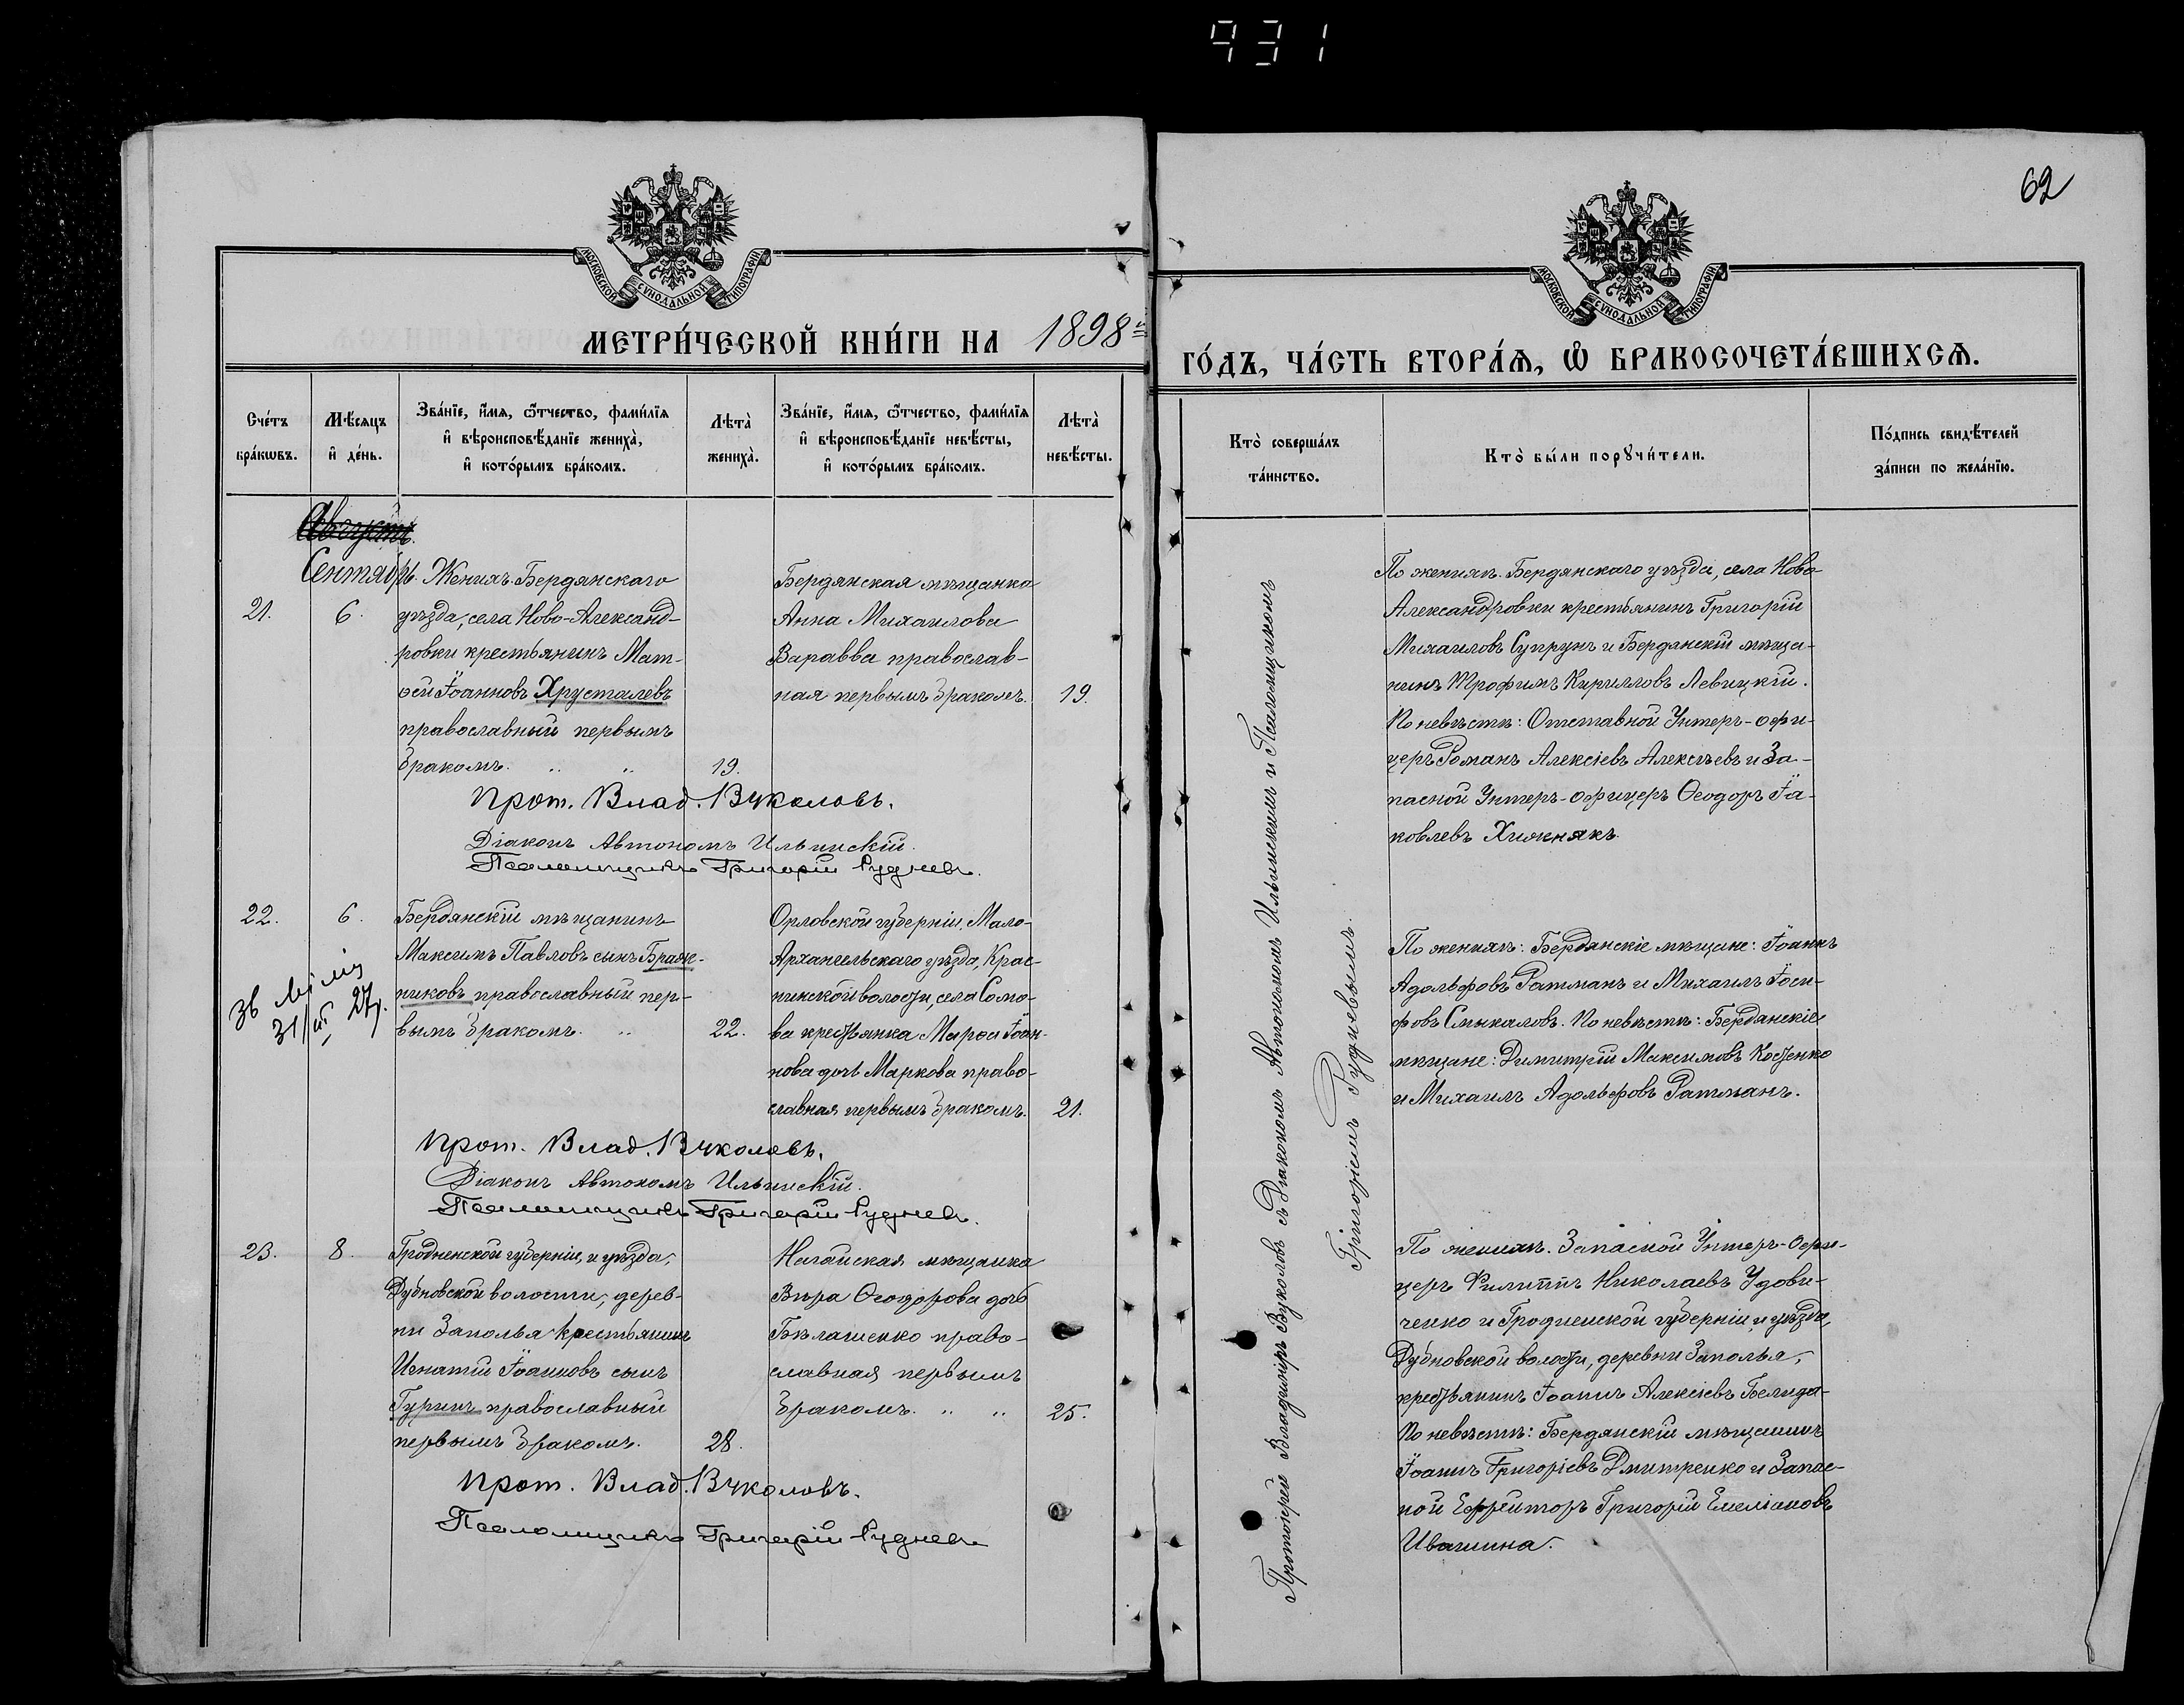 931
62
МОСКОВСКОЙ СѴНОДАЛЬНОЙ ТИПОГРАФІИ
МЕТРИ́ЧЕСКОЙ КНИ́ГИ НА 1898й
Сче́тъ бра́кѡвъ.
Мѣ́сяцъ и҆ де́нь.
Зва́нїе, и҆́мя, ѻ҆́тчество, фами́лїя и҆ вѣроисповѣ́данїе жениха̀, и҆ кото́рымъ бра́комъ.
Лѣта̀ жениха̀.
Зва́нїе, и҆́мя, ѻ҆́тчество, фами́лїя и҆ вѣроисповѣ́данїе невѣ́сты, и҆ кото́рымъ бра́комъ.
Лѣта̀ невѣ́сты.
Августъ.
Сентябрь.
21.
6.
Женихъ. Бердянскаго
уѣзда, села Ново-Александ-
ровки крестьянинъ Мат-
ѳей Іоанновъ Хрусталевъ
православный первымъ
бракомъ. 19.
Бердянская мѣщанка
Анна Михаилова
Варавва православ-
ная первымъ бракомъ. 19.
Прот. Влад. Вуколовъ.
Діаконъ Автономъ Ильинскій.
Псаломщикъ Григорій Рудневъ.
22.
6.
Бердянскій мѣщанинъ
Максимъ Павловъ сынъ Браж-
никовъ православный пер-
вымъ бракомъ. 22.
31/III 27 г.
Орловской губерніи, Мало-
Архангельскаго уѣзда, Крас-
нинской волости, села Сомо-
ва крестьянка Марѳа Іоан-
нова дочь Маркова право-
славная первымъ бракомъ. 21.
Прот. Влад. Вуколовъ.
Діаконъ Автономъ Ильинскій.
Псаломщикъ Григорій Рудневъ.
23.
8.
Гродненской губерніи, и уѣзда,
Дубновской волости, дерев-
ни Заполья крестьянинъ
Игнатій Іоанновъ сынъ
Гуринъ православный
первымъ бракомъ. 28.
Ногайская мѣщанка
Вѣра Ѳеодорова дочь
Бѣлашенко право-
славная первымъ
бракомъ. 25.
Прот. Влад. Вуколовъ.
Псаломщикъ Григорій Рудневъ.
МОСКОВСКОЙ СѴНОДАЛЬНОЙ ТИПОГРАФІИ
ГО́ДЪ, ЧА́СТЬ ВТОРА́Ѧ, Ѽ БРАКОСОЧЕТА́ВШИХСѦ.
Кто̀ соверша́лъ та́инство.
Кто̀ бы́ли порꙋчи́тели.
По́дпись свидѣ́телей за́писи по жела́нїю.
Протоіерей Владиміръ Вуколовъ съ Діакономъ Автономомъ Ильинскимъ и Псаломщикомъ
Григоріемъ Рудневымъ.
По женихѣ. Бердянскаго уѣзда, села Ново-
Александровки крестьянинъ Григорій
Михаиловъ Супрунъ и Бердянскій мѣща-
нинъ Трофимъ Кирилловъ Левицкій.
По невѣстѣ: Отставной Унтеръ-офи-
церъ Романъ Алексіевъ Алексѣевъ и За-
пасной Унтеръ-офицеръ Ѳеодоръ Іа-
ковлевъ Хижнякъ.
По женихѣ: Бердянскіе мѣщане: Іоаннъ
Адольфовъ Ратманъ и Михаилъ Іоси-
фовъ Смыкаловъ. По невѣстѣ: Бердянскіе
мѣщане: Димитрій Максимовъ Костенко
и Михаилъ Адольфовъ Ратманъ.
По женихѣ. Запасной Унтеръ-офи-
церъ Филиппъ Николаевъ Удови-
ченко и Гродненской губерніи, и уѣзда,
Дубновской волости, деревни Заполья,
крестьянинъ Іоаннъ Алексіевъ Белида-
По невѣстѣ: Бердянскій мѣщанинъ
Іоаннъ Григоріевъ Дмитренко и Запас-
ной Ефрейторъ Григорій Емеліановъ
Ивашина.